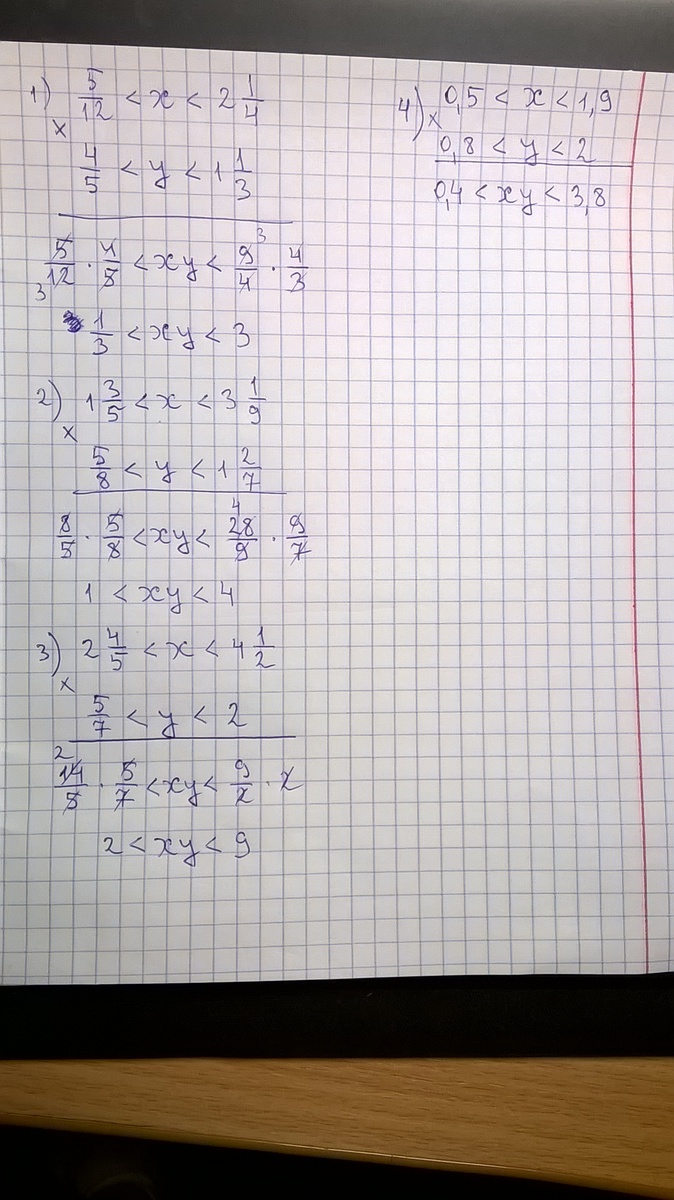 1) 5/12 < x < 2 1/4
x
4/5 < y < 1 1/3
5/12 · 4/5 < xy < 9/4 · 4/3
3 3
1/3 < xy < 3
2) 1 3/5 < x < 3 1/9
x
5/8 < y < 1 2/7
4
8/5 · 5/8 < xy < 28/9 · 9/7
1 < xy < 4
3) 2 4/5 < x < 4 1/2
x
5/7 < y < 2
2
14/5 · 5/7 < xy < 9/2 · 2
2 < xy < 9
4) x 0,5 < x < 1,9
0,8 < y < 2
0,4 < xy < 3,8